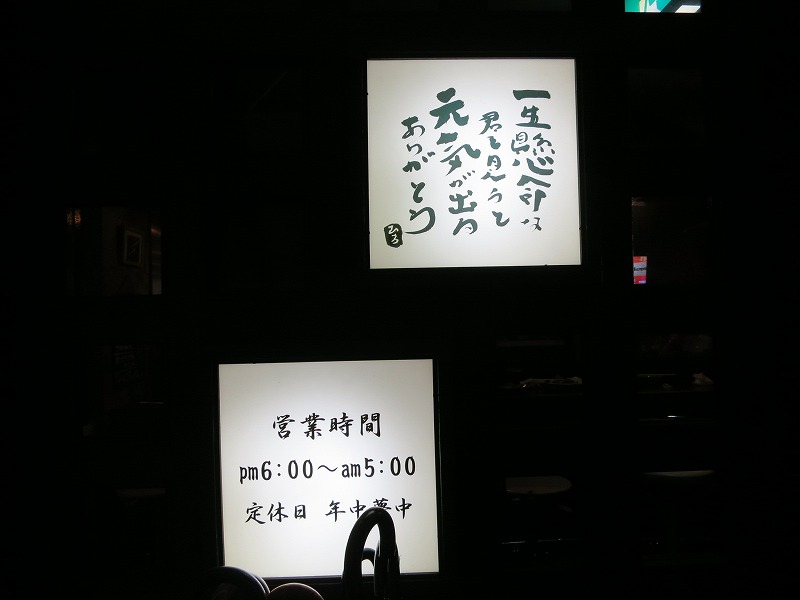 一生懸命な
君を見ると
元気が出る
ありがとう
ひろ
営業時間
pm6:00～am5:00
定休日 年中夢中